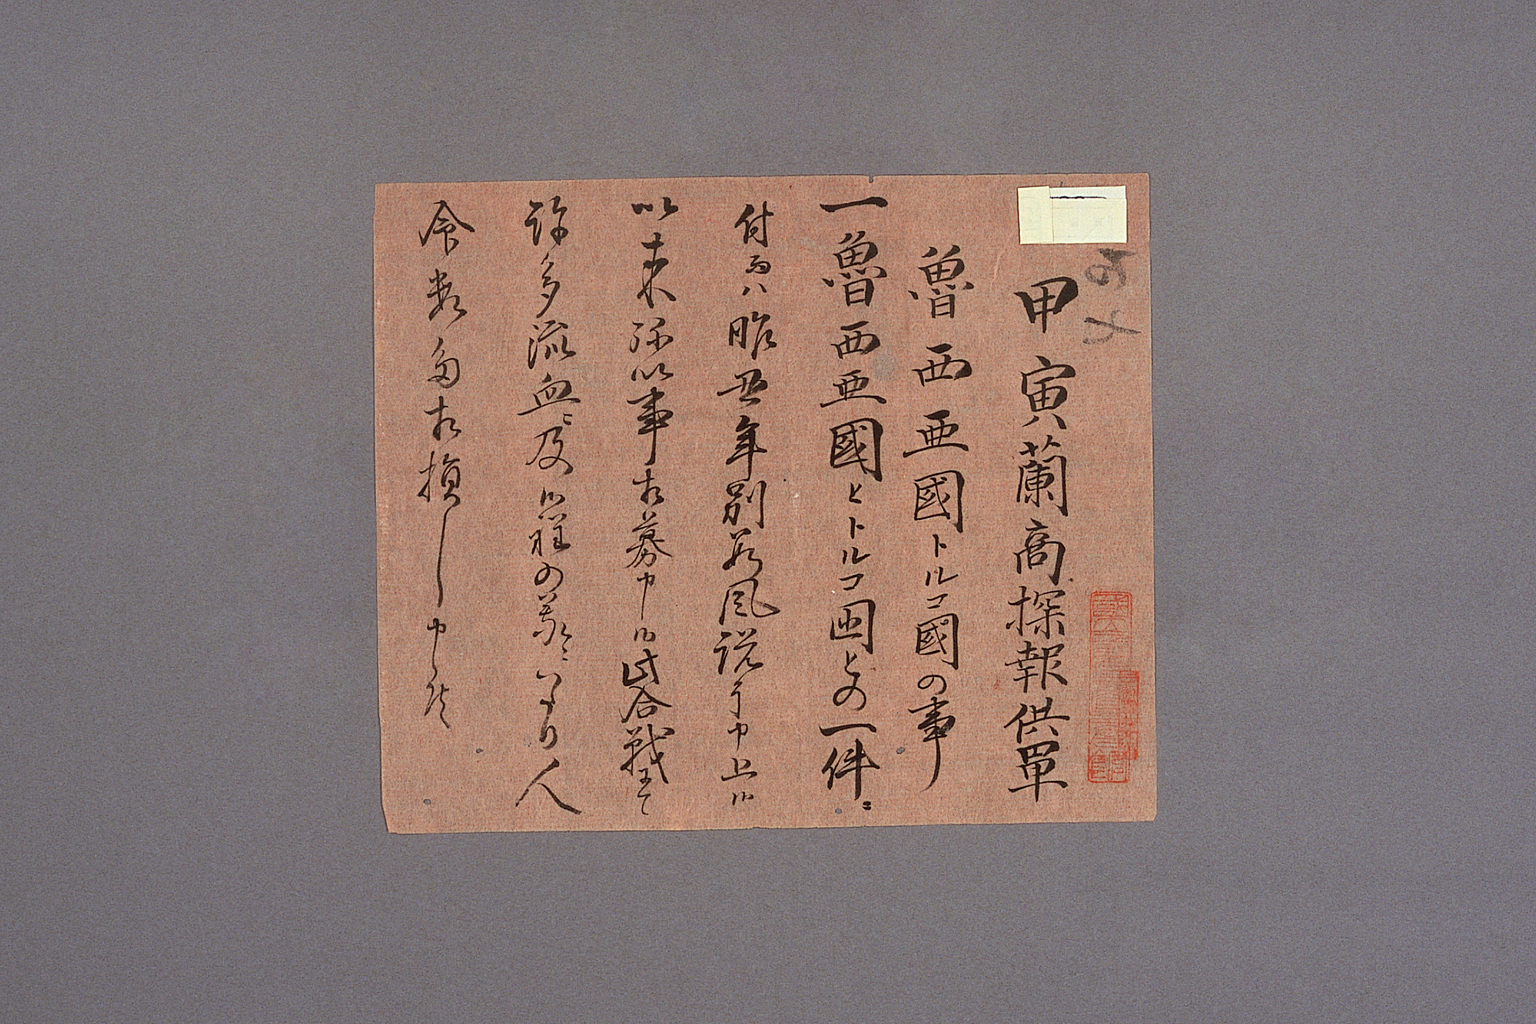 甲寅蘭高探報供單
魯西亜國トルコ國の事
一魯西亜國とトルコ国との一件ニ
付而ハ昨丑年別段風説ニ申上候
以来弥以事相募申候此合戦ニて
許多流血ニ及候程の義ニいたり人
命数多相損し申候